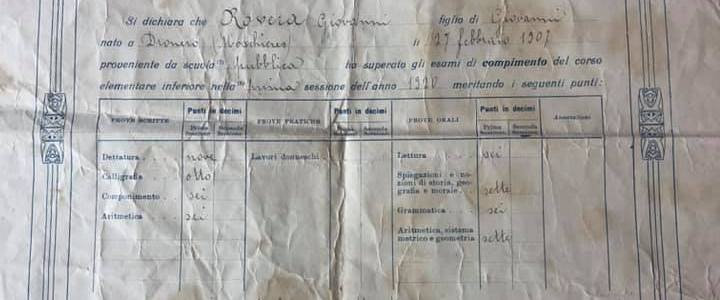 Si dichiara che Rovera Giovanni figlio di Giovanni
nato a Dronero (Moschieres) li 27 febbraio 1907
proveniente da scuola pubblica ha superato gli esami di compimento del corso
elementare inferiore nella prima sessione dell'anno 1920 meritando i seguenti punti:
PROVE SCRITTE Punti in decimi PROVE PRATICHE Punti in decimi PROVE ORALI Punti in decimi Annotazioni
Prima Sessione Seconda Sessione Prima Sessione Seconda Sessione Prima Sessione Seconda Sessione
Dettatura nove Lavori donneschi Lettura sei
Calligrafia otto Spiegazioni e no-
zioni di storia, geo-
grafia e morale sette
Componimento sei
Aritmetica sei Grammatica sei
Aritmetica, sistema
metrico e geometria sette